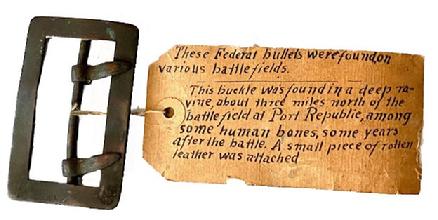 These Federal bullets were found on
various battlefields.
This buckle was found in a deep ra-
vine, about three miles north of the
battlefield at Port Republic, among
some human bones, some years
after the battle. A small piece of rotten
leather was attached